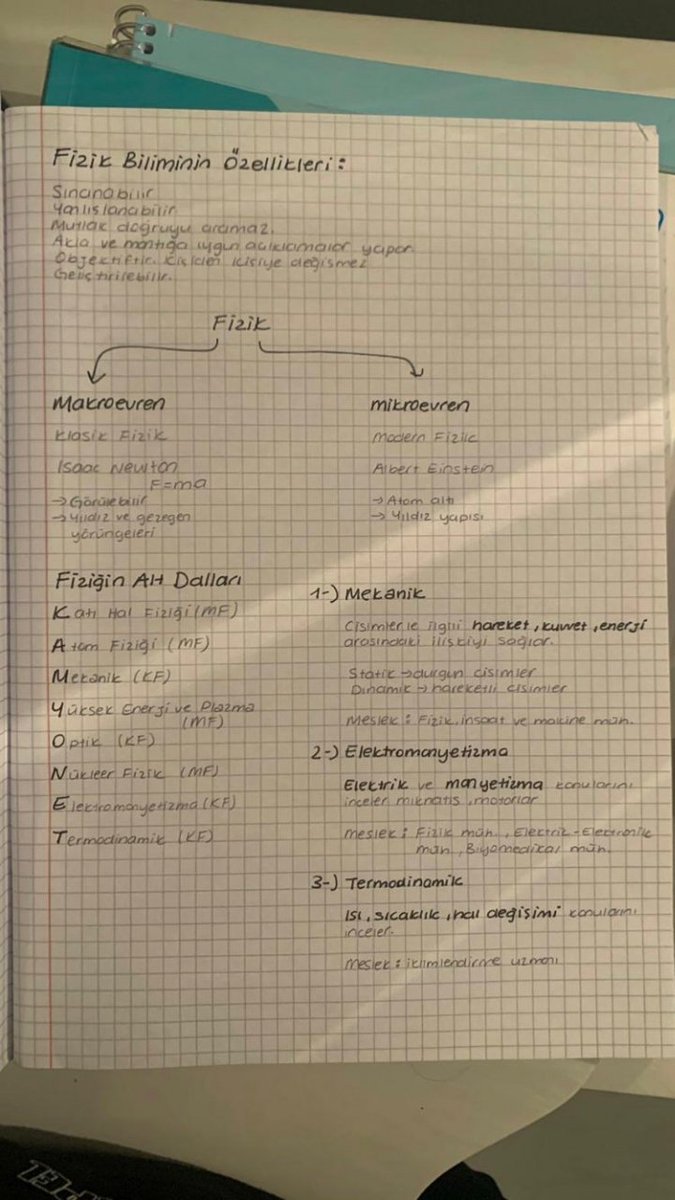 Fizik Biliminin Özellikleri:
Sınanabilir
Yanlışlanabilir
Mutlak doğruyu aramaz.
Akla ve mantığa uygun açıklamalar yapar.
Objektiftir. kişiden kişiye değişmez
Geliştirilebilir.
Fizik
Makroevren
Klasik Fizik
Isaac Newton
F=ma
→ Görülebilir
→ Yıldız ve gezegen
yörüngeleri
mikroevren
Modern Fizik
Albert Einstein
→ Atom altı
→ Yıldız yapısı
Fiziğin Alt Dalları
Katı Hal Fiziği (MF)
Atom Fiziği (MF)
Mekanik (KF)
Yüksek Enerji ve Plazma
(MF)
Optik (KF)
Nükleer Fizik (MF)
Elektromanyetizma (KF)
Termodinamik (KF)
1-) Mekanik
Cisimlerle ilgili hareket, kuvvet, enerji
arasındaki ilişkiyi sağlar.
Statik → durgun cisimler
Dinamik → hareketli cisimler
Meslek: Fizik, inşaat ve makine müh.
2-) Elektromanyetizma
Elektrik ve manyetizma konularını
inceler mıknatıs, motorlar
meslek: Fizik müh., Electrik-Electronik
müh., Biyomedikal müh.
3-) Termodinamik
Isı, sıcaklık, hal değişimi konularını
inceler.
meslek: iklimlendirme uzmanı